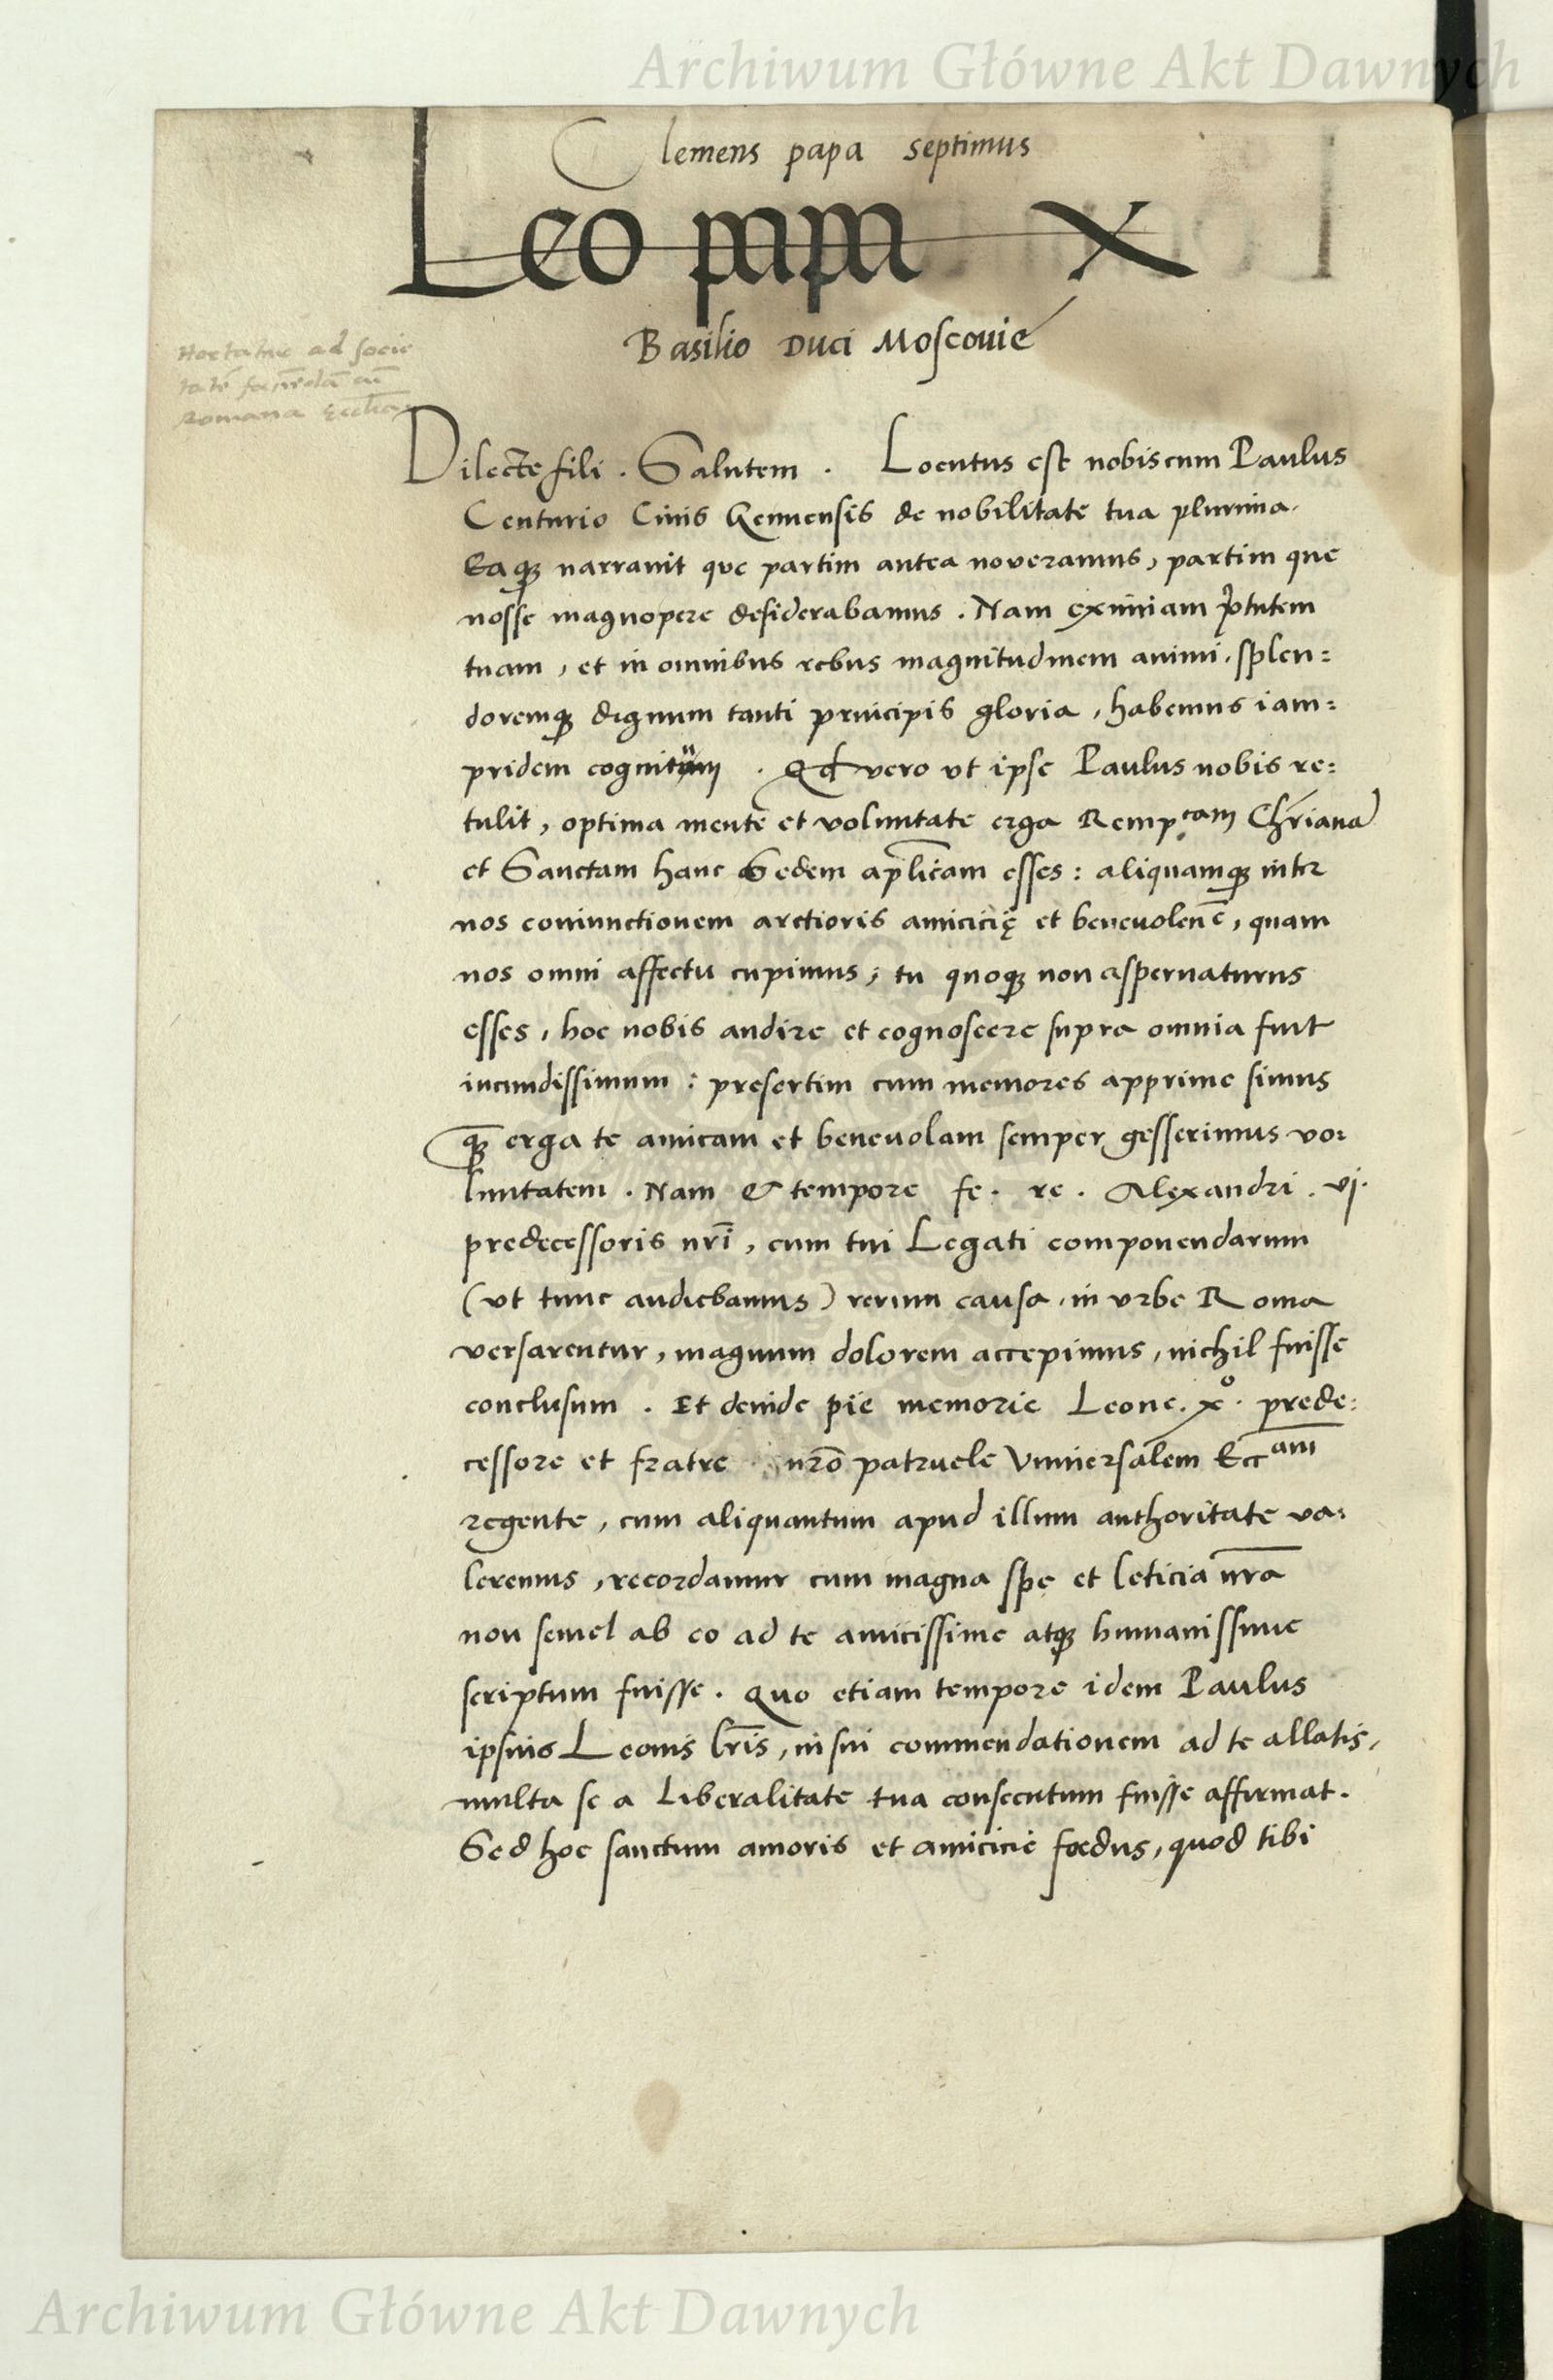 Archiwum Główne Akt Dawnych
Clemens papa septimus
Leo papa X
Basilio Duci Moscouie
Hortatur ad socie
tatē faciēdā cū
Romana Ecclia
Dilecte fili . Salutem . Locutus est nobiscum Paulus
Centurio Ciuis Genuensis de nobilitate tua plurima.
Eaqꝫ narrauit que partim antea noueramus, partim que
nosse magnopere desiderabamus . Nam eximiam v̓tutem
tuam , et in omnibus rebus magnitudinem animi, splen=
doremqꝫ dignum tanti principis gloria , habemus iam=
pridem cognitum . Qd vero vt ipse Paulus nobis re=
tulit , optima mente et voluntate erga Remp.cam Chrīanā
et Sanctam hanc Sedem aplicam esses : aliquamqꝫ inter
nos coniunctionem arctioris amicicię et beneuolenc̄ , quam
nos omni affectu cupimus ; tu quoqꝫ non aspernaturus
esses , hoc nobis audire et cognoscere supra omnia fuit
iucundissimum : presertim cum memores apprime simus
qꝫ erga te amicam et beneuolam semper gesserimus vo=
luntatem . Nam & tempore fe. re. Alexandri . vj.
predecessoris nrī , cum tui Legati componendarum
(vt tunc audiebamus) rerum causa , in vrbe Roma
versarentur , magnum dolorem accepimus , nichil fuisse
conclusum . Et deinde pie memorie Leone . xº. prede=
cessore et fratre nrō patruele Vniuersalem Eccam
regente , cum aliquantum apud illum authoritate va=
leremus , recordamur cum magna spe et leticia nrā
non semel ab eo ad te amicissime atqꝫ humanissime
scriptum fuisse . Quo etiam tempore idem Paulus
ipsius Leonis lrīs , in sui commendationem ad te allatis ,
multa se a Liberalitate tua consecutum fuisse affirmat .
Sed hoc sanctum amoris et amicicie fœdus , quod tibi
Archiwum Główne Akt Dawnych